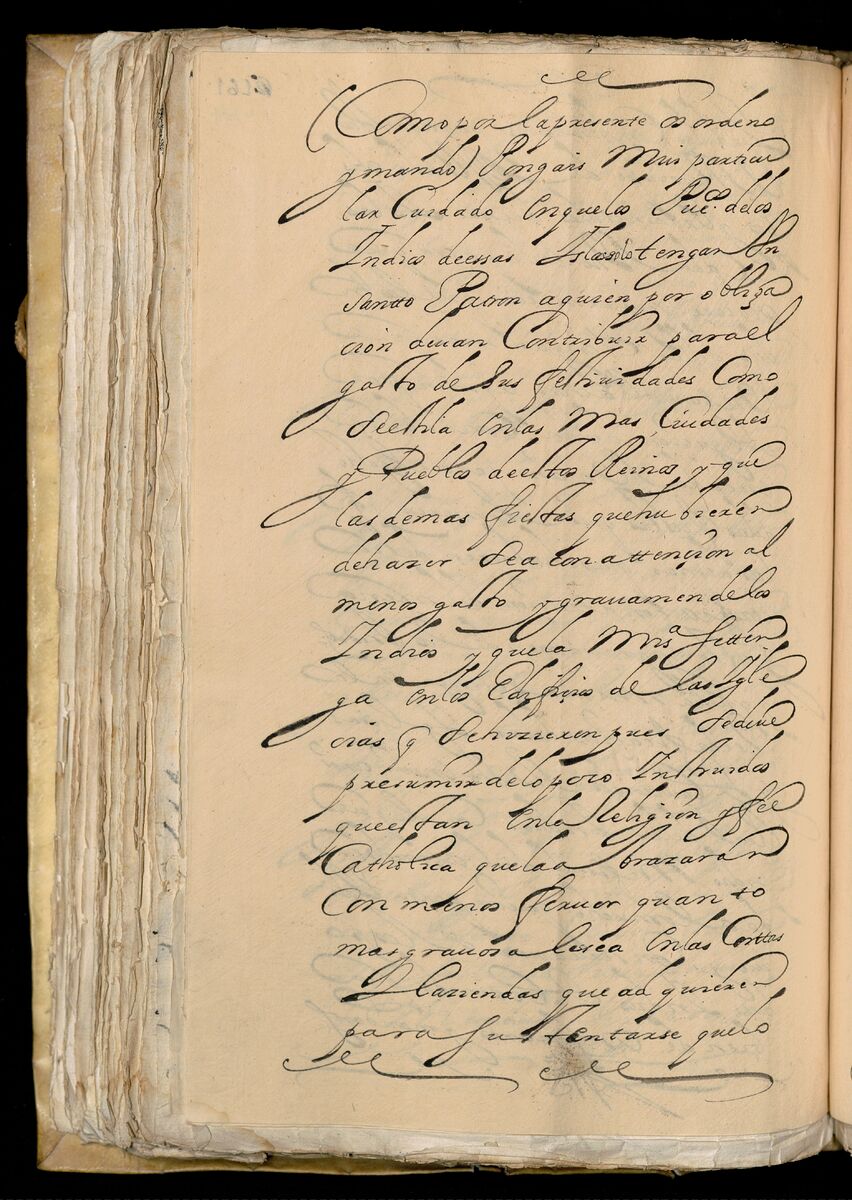 (Como por la presente os ordeno
y mando) Pongais Mui particu
lar Cuidado en que los Pueºs. de los
Indios de essas Islas solo tengan Vn
santto Patron a quien por obliga
cion deuan Contribuir para el
gasto de sus festiuidades Como
se estila en las Mas Ciudades
y Pueblos de estos Reinos y que
las demas fiestas que hubieren
de hazer sea con attençion al
menos gasto y grauamen de los
Indios y que la Misª se tten
ga en los Edifiçios de las Igle
cias q se hizieren pues se deue
presumir de lo poco Instruidos
que estan en la Religion y fee
Catholica que la abrazaran
Con menos feruor quanto
mas grauosa les sea en las Corttas
Haziendas que adquieren
para sustentarse que lo